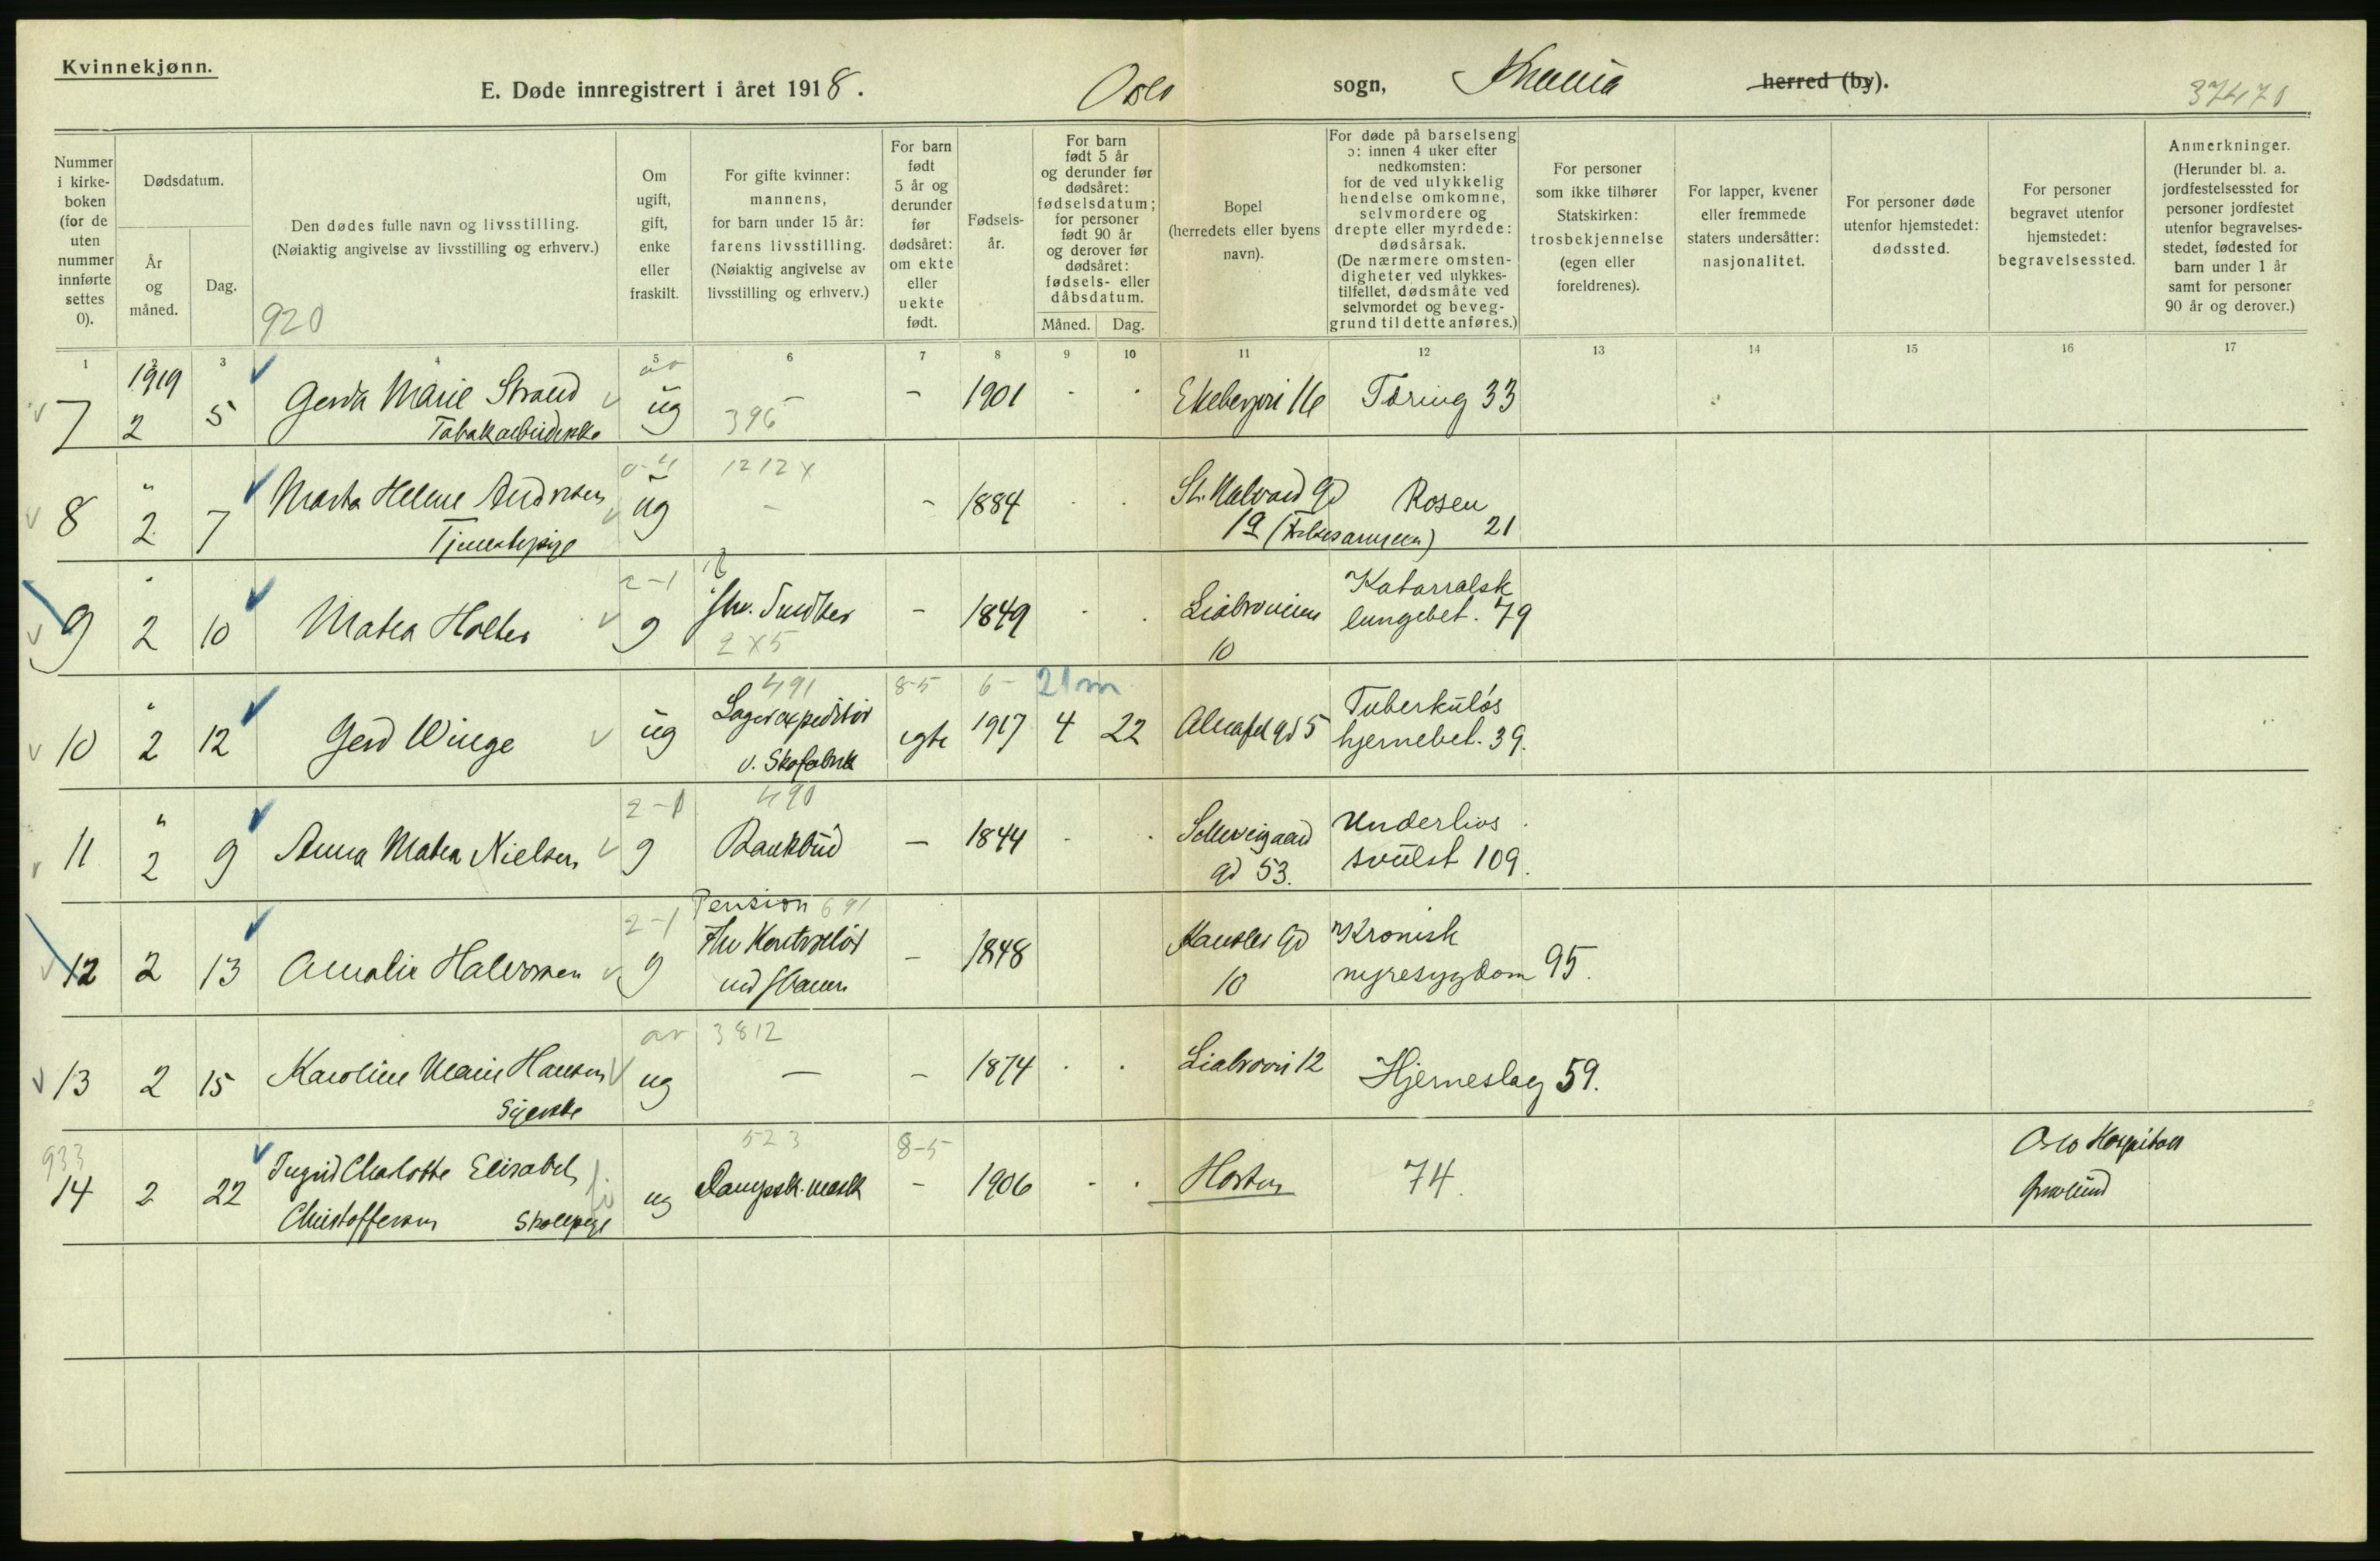 Kvinnekjønn.
E. Døde innregistrert i året 1918. Oslo sogn, Kra̅nia herred (by). 37470
Nummer i kirkeboken (for de uten nummer innførte settes 0).
Dødsdatum.
År og måned.
Dag.
Den dødes fulle navn og livsstilling.
(Nøiaktig angivelse av livsstilling og erhverv.)
920
Om ugift, gift, enke eller fraskilt.
For gifte kvinner: mannens, for barn under 15 år: farens livsstilling.
(Nøiaktig angivelse av livsstilling og erhverv.)
For barn født 5 år og derunder før dødsåret: om ekte eller uekte født.
Fødselsår.
For barn født 5 år og derunder før dødsåret: fødselsdatum; for personer født 90 år og derover før dødsåret: fødsels- eller dåbsdatum.
Måned. Dag.
Bopel
(herredets eller byens navn).
For døde på barselseng ɔ: innen 4 uker efter nedkomsten: for de ved ulykkelig hendelse omkomne, selvmordere og drepte eller myrdede: dødsårsak.
(De nærmere omstendigheter ved ulykkestilfellet, dødsmåte ved selvmordet og beveggrund til dette anføres.)
For personer som ikke tilhører Statskirken: trosbekjennelse (egen eller foreldrenes).
For lapper, kvener eller fremmede staters undersåtter: nasjonalitet.
For personer døde utenfor hjemstedet: dødssted.
For personer begravet utenfor hjemstedet: begravelsessted.
Anmerkninger.
(Herunder bl. a. jordfestelsessted for personer jordfestet utenfor begravelsesstedet, fødested for barn under 1 år samt for personer 90 år og derover.)
1 2 3 4 5 6 7 8 9 10 11 12 13 14 15 16 17
1919
7 2 5 Gerda Marie Strand ug - - 1901 Ekebergvei 16 Tæring 33
Tabakarbeiderske 396
0-4 1212 x
8 " 2 7 Marta Helene Andresen ug - - 1884 St. Halvard gd Rosen
Tjenestepige 19 (Frelsesarmeen) 21
2-1
9 " 2 10 Matea Holter g fhv. Snedker - 1849 Liabroveien Katarralsk
2 x 5 10 lungebet. 79
491 8-5 6- 21 m
10 " 2 12 Gerd Winge ug Lagerexpeditør egte 1917 4 22 Almafel gd 5 Tuberkuløs
v. Skofabrik hjernebet. 39.
2-1 490
11 " 2 9 Anna Matea Nielsen g Bankbud - 1844 Schweigaard Underlivs
gd 53. svulst 109.
2-1 Pension 691
12 2 13 Amalie Halvorsen g fhv Kontrolør - 1848 Kansler gd Kronisk
ved 10 nyresygdom 95.
3812
13 2 15 Karoline Marie Hansen ug - - 1874 Liabrovei 12 Hjerneslag 59.
Syerske
933 523 8-5
14 2 22 Ingrid Charlotte Elisabeth ug Dampsk. mask - 1906 Horten 74. Oslo Hospital
Christoffersen Skolepige Gravlund